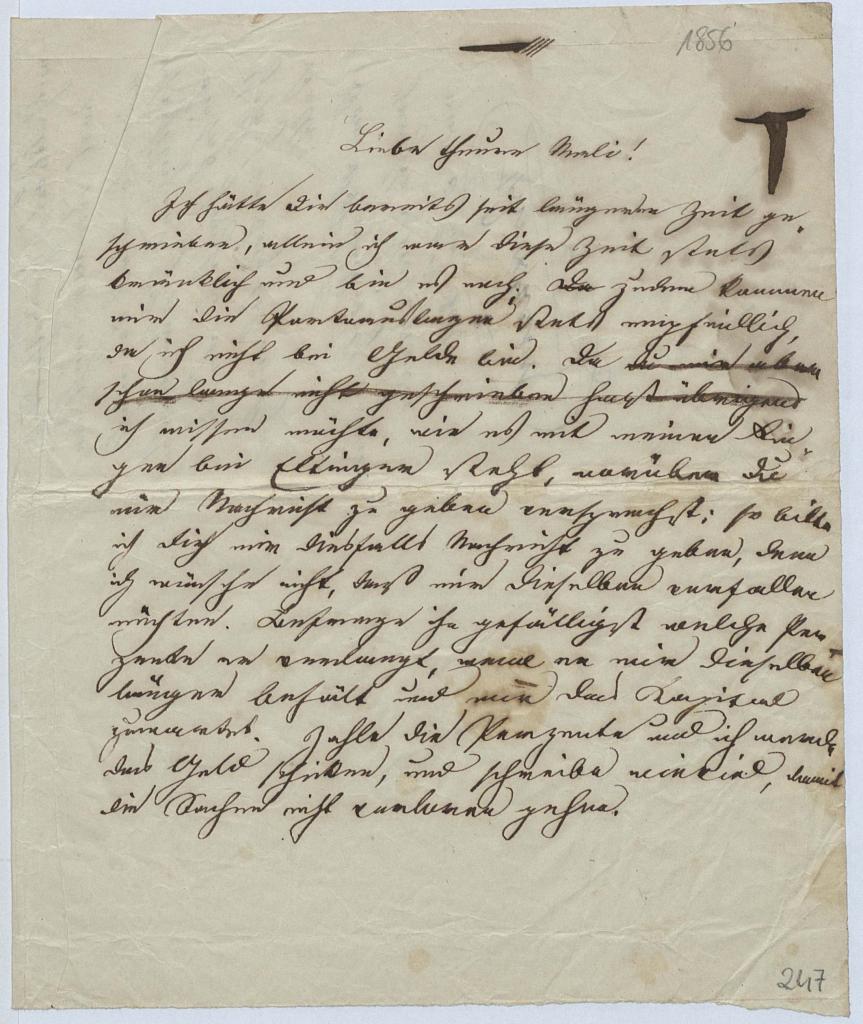 1856
Liebe theure Mali!
Ich hätte Dir bereits seit längerer Zeit ge-
schrieben, allein ich war diese Zeit stets
kränklich und bin es noch. Da zudem kommen
mir die Portoauslagen stets empfindlich,
da ich nicht bei Gelde bin. Da du mir aber
schon lange nicht geschrieben hast übrigens
ich wissen möchte, wie es mit meinen Din-
gen bei Ettinger steht, worüber Du
mir Nachricht zu geben versprachst; so bitte
ich Dich mir diesfalls Nachricht zu geben, denn
ich wünsche nicht, daß mir dieselben verfallen
möchten. Befrage ihn gefälligst welche Per-
zente er verlangt, wenn er mir dieselben
länger behält und mir das Kapital
zuwartet. Zahle die Perzente und ich werde
das Geld schicken, und schreibe wieviel, damit
die Sachen nicht verloren gehen.
247